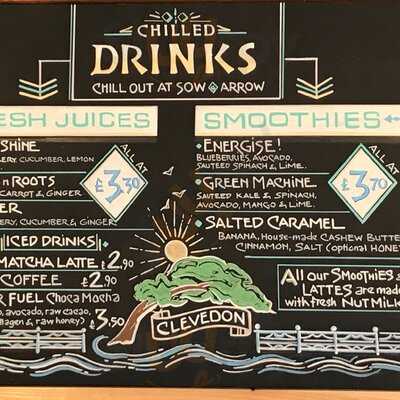 CHILLED
DRINKS
CHILL OUT AT SOW & ARROW
ESH JUICES
SHINE
ERY, CUCUMBER, LEMON
n ROOTS
CARROT & GINGER
ER
ERY, CUCUMBER & GINGER
ALL AT
£3.30
ICED DRINKS
MATCHA LATTE £2.90
COFFEE £2.90
R FUEL CHOCA MOCHA
O, AVOCADO, RAW CACAO,
LAGEN & RAW HONEY) £3.50
SMOOTHIES
ENERGISE!
BLUEBERRIES, AVOCADO,
SAUTEED SPINACH & LIME.
GREEN MACHINE
SAUTEED KALE & SPINACH,
AVOCADO, MANGO & LIME.
ALL AT
£3.70
SALTED CARAMEL
BANANA, HOUSE-MADE CASHEW BUTTE
CINNAMON, SALT (OPTIONAL HONEY
All our Smoothies &
LATTES are made
with fresh Nut Milk
CLEVEDON